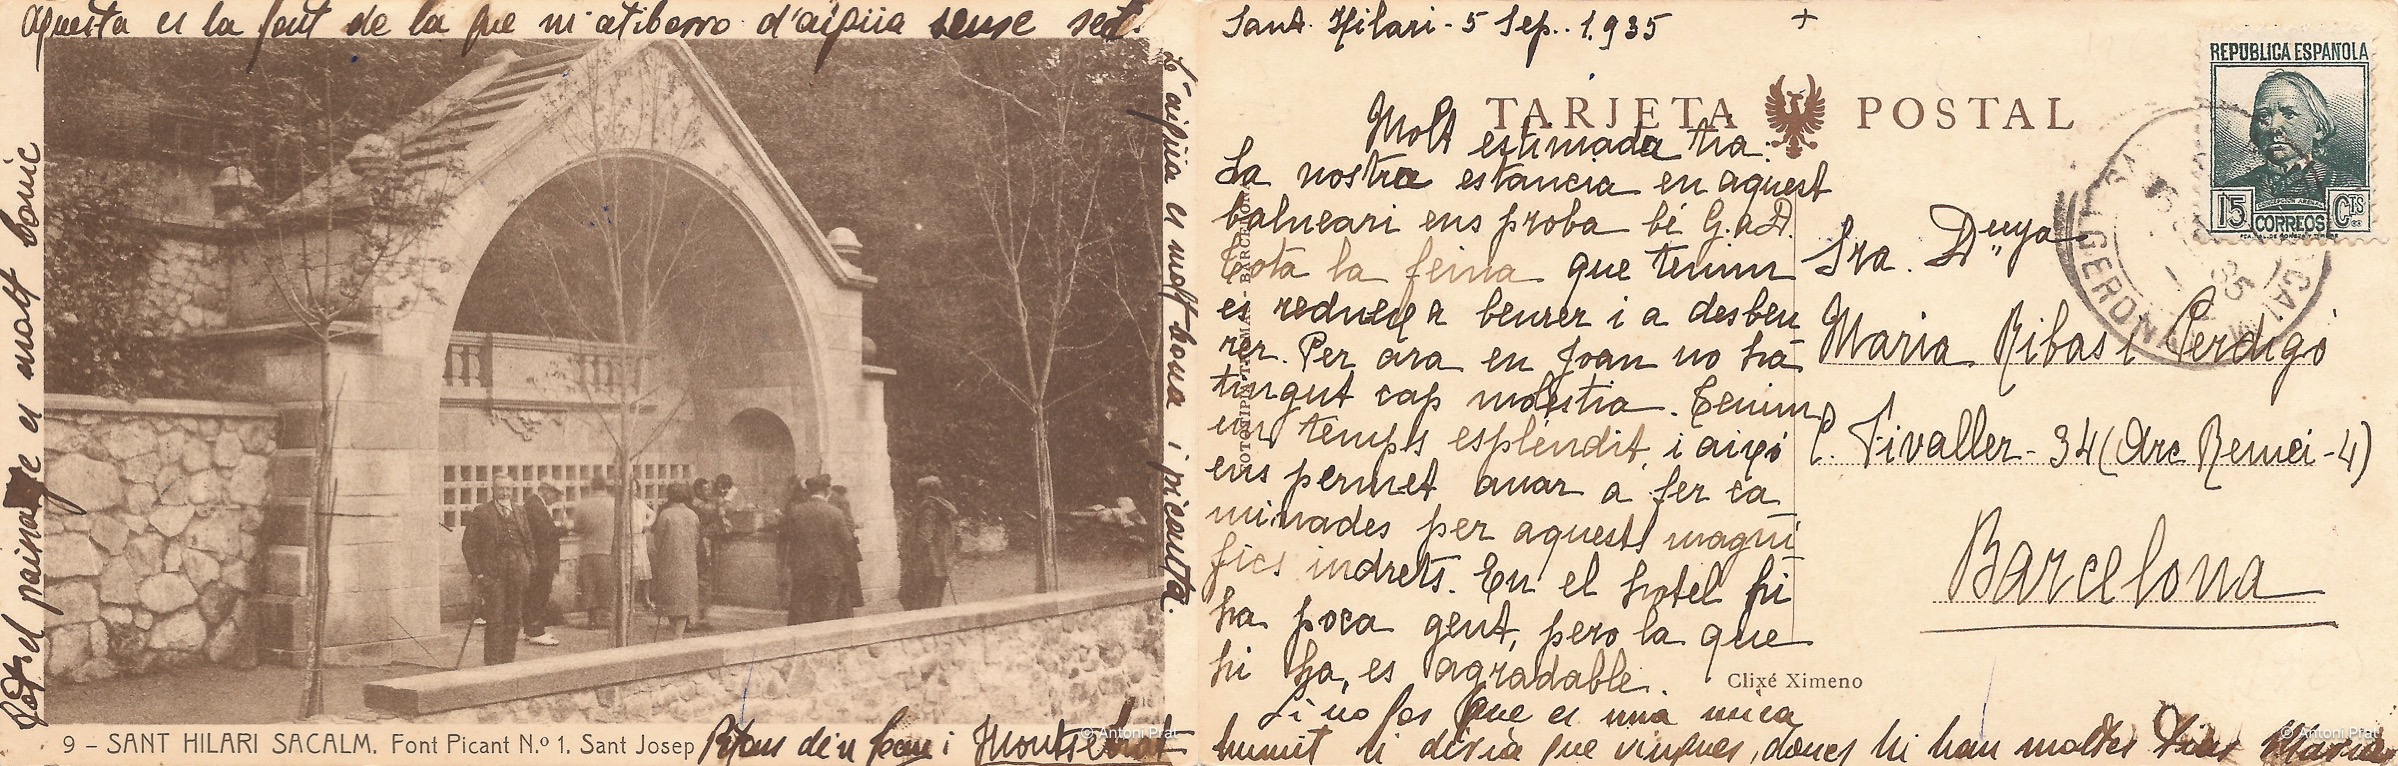 Aquesta es la font de la que m'atiberro d'aigua sense set.
L'aigua es molt bona i picanta.
Tot el paisatge es molt bonic
9 – SANT HILARI SACALM. Font Picant N.º 1. Sant Josep
Petons de'n Joan i Montserrat
© Antoni Prat
Sant Hilari - 5 Sep. 1.935
TARJETA POSTAL
REPÚBLICA ESPAÑOLA
15 CORREOS CTS
GERONA
Molt estimada tia:
La nostra estancia en aquest
balneari ens proba bé G. a D.
Tota la feina que tenim
es redueix a beurer i a desbeu
rer. Per ara en Joan no há
tingut cap molestia. Tenim
un temps esplèndit, i aixó
ens permet anar a fer ca
minades per aquests magni
fics indrets. En el hotel hi
ha poca gent, pero la que
hi ha, es agradable.
Si no fos que es una mica
humit li diria que vingues, doncs hi han moltes
FOTOTIPIA THOMAS - BARCELONA
Sra. Dnya
Maria Ribas i Perdigó
C. Fivaller - 34 (Arc Remei - 4)
Barcelona
Clixé Ximeno
© Antoni Prat